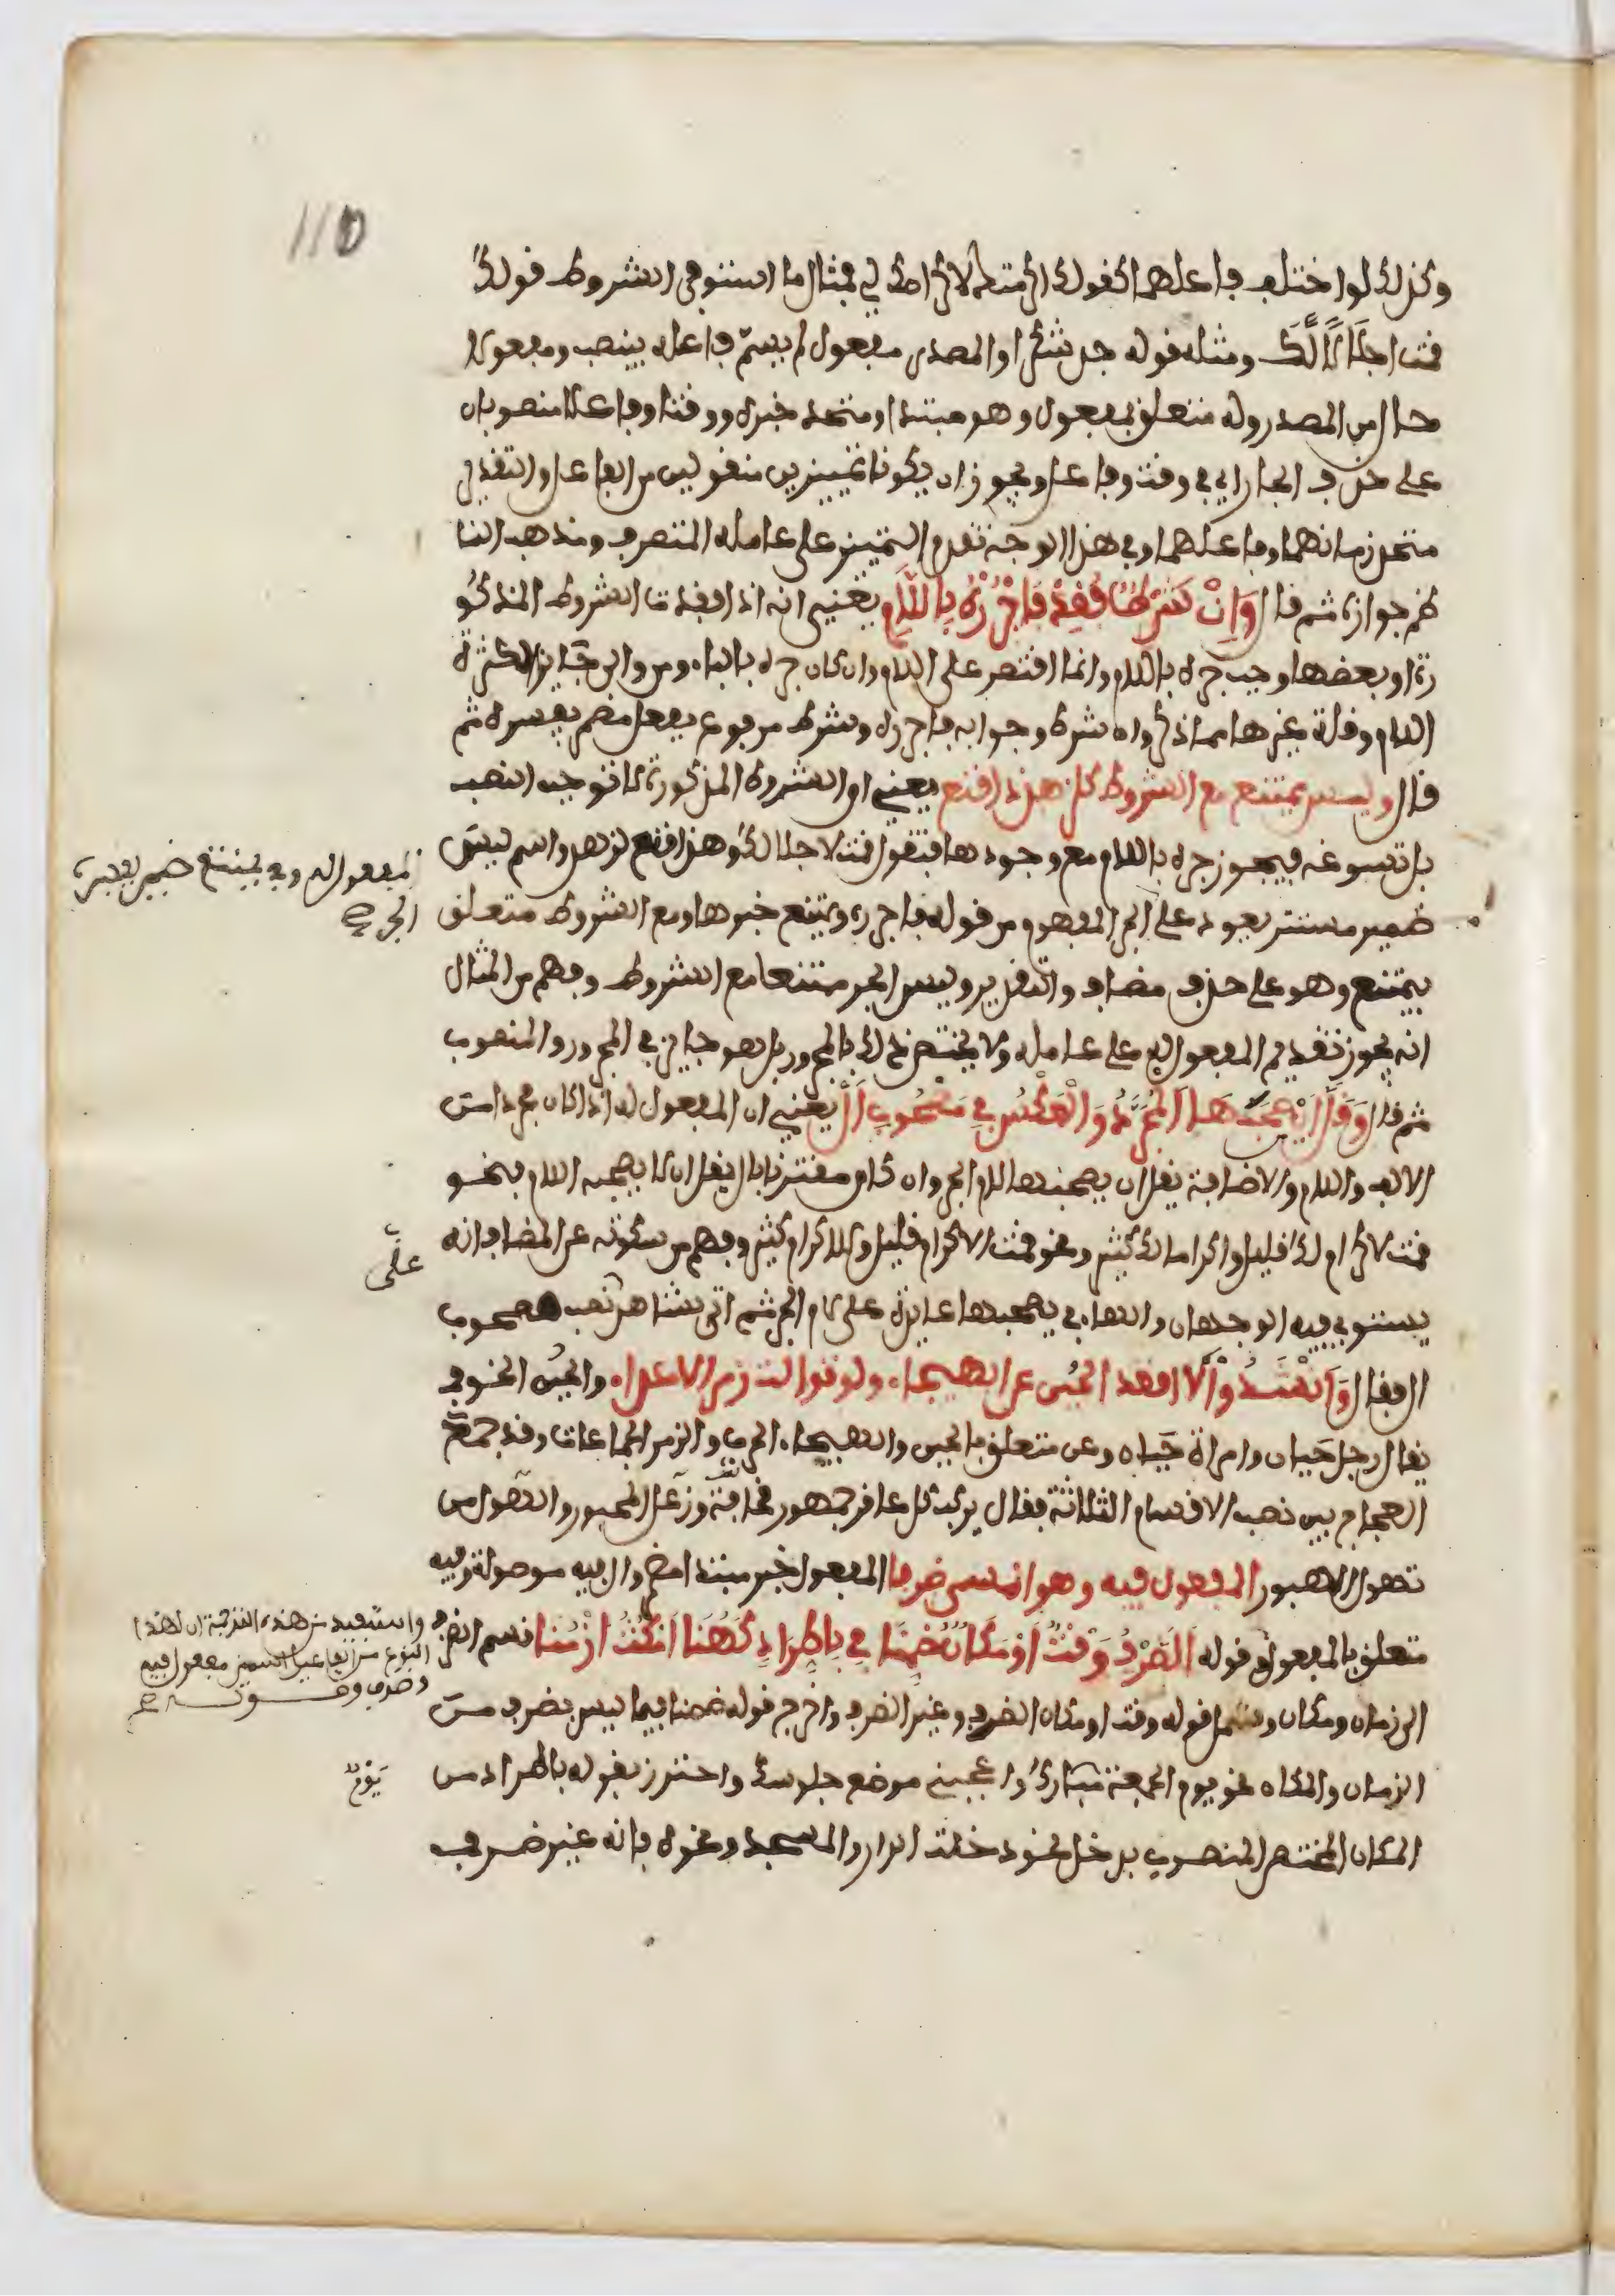 110
وكذلك لو اختلف فاعلهما كقولك اكرمتك لاكرامك لي فمثال ما استوفى الشروط قولك
قمت اجلالا لك ومثله قوله جد شكرا والمصدر مفعول لم يسم فاعله ينصب ومفعولا
حال من المصدر وله متعلق بمفعول وهو مبتدا ومتحد خبره ووقتا وفاعلا منصوبان
على حذف الجار اي في وقت وفاعل ويجوز ان يكونا تمييزين منقولين من الفاعل والتقدير
متحد زمانهما وفاعلهما وفي هذا الوجه تقديم التمييز على عامله المتصرف ومذهب النا
ظم جوازه ثم قال وَإِنْ شَرْطٌ فُقِدْ فَاجْرُرْهُ بِاللَّامِ يعني انه اذا فقدت الشروط المذكو
رة او بعضها وجب جره باللام وانما اقتصر على اللام وان كان جره بالباء ومن وفي جايز لكثرة
اللام وقلة غيرها مما ذكر وان شرط وجوابه فاجرره وشرط مرفوع بفعل مضمر يفسره ثم
قال وليس يمتنع مع الشروط كلزهد ذا قنع يعني ان الشروط المذكورة لا توجب النصب
بل تسوغه فيجوز جره باللام مع وجودها فتقول قمت لاجلالك وهذا قنع لزهد واسم ليس
ضمير مستتر يعود على الجر المفهوم من قوله فاجرره ويمتنع خبرها ومع الشروط متعلق
المفعول له وفي يمتنع ضمير يفسره
الجر صح
بيمتنع وهو على حذف مضاف والتقدير وليس الجر ممتنعا مع الشروط وفهم من المثال
انه يجوز تقديم المفعول له على عامله ولا يختص ذلك بالمجرور بل هو جايز في المجرور والمنصوب
ثم قال وَقَلَّ أَنْ يَصْحَبَهَا الْمُجَرَّدُ وَالْعَكْسُ فِي مَصْحُوبِ أَلْ يعني ان المفعول له اذا كان مجردا من
الالف واللام والاضافة يقل ان يصحبها لام الجر وان كان مقترنا بال يقل ان لا يصحبه اللام فنحو
قمت لاكرام لك قليل واكراما لك كثير ونحو قمت الاكرام قليل وللاكرام كثير وفهم من سكوته عن المضاف انه
على
يستوي فيه الوجهان والهاء في يصحبها عايدة على لام الجر ثم اتى بشاهد نصب مصحوب
ال فقال وَأَنْشَدُوا لا اقعد الجبن عن الهيجاء ولو توالت زمر الاعداء والجبن الخوف
يقال رجل جبان وامراة جبان وعن متعلق بالجبن والهيجاء الحرب والزمر الجماعات وقد جمع
العجاج بين نصب الاقسام الثلاثة فقال يركب كل عاقر جمهور مخافة وزعل المحبور والهول من
تهول الهبور المفعول فيه وهو المسمى ظرفا المفعول خبر مبتدا مضمر وال فيه موصولة وفيه
متعلق بالمفعول قوله الظَّرْفُ وَقْتٌ أَوْ مَكَانٌ ضُمِّنَا فِي بِاطِّرَادٍ كَهُنَا امْكُثْ أَزْمُنَا قسم الظرف
واستفيد من هذه الترجمة ان لهذا
النوع من المفاعيل اسمين مفعول فيه
وظرف
الى زمان ومكان وشمل قوله وقت او مكان الظرف وغير الظرف واخرج قوله ضمنا فيما ليس بظرف من
الزمان والمكان نحو يوم الجمعة مبارك واعجبني موضع جلوسك واحترز بقوله باطراد من
يوم
المكان المختص المنصوب بدخل نحو دخلت الدار والمسجد ونحوه فانه غير ظرف